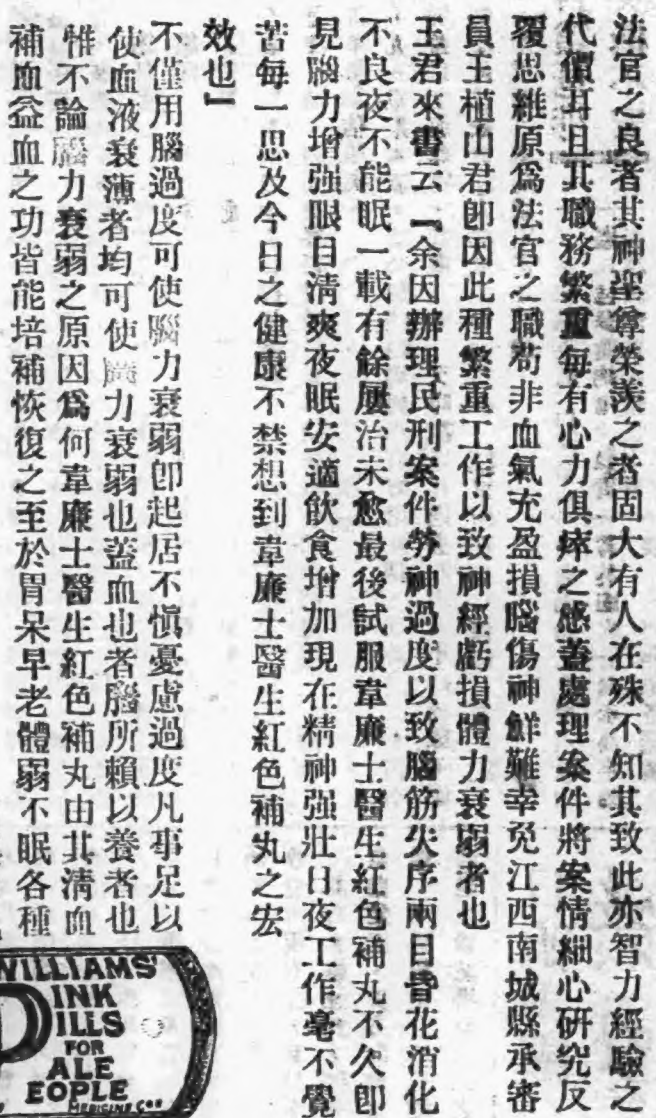 法官之良者其神聖尊榮羨之者固大有人在殊不知其致此亦智力經驗之
代價耳且其職務繁重每有心力俱瘁之感蓋處理案件將案情細心研究反
覆思維原爲法官之職苟非血氣充盈損腦傷神鮮難幸免江西南城縣承審
員王植山君卽因此種繁重工作以致神經虧損體力衰弱者也
王君來書云『余因辦理民刑案件勞神過度以致腦筋失序兩目昏花消化
不良夜不能眠一載有餘屢治未愈最後試服韋廉士醫生紅色補丸不久卽
見腦力增强眼目淸爽夜眠安適飲食增加現在精神强壯日夜工作毫不覺
苦每一思及今日之健康不禁想到韋廉士醫生紅色補丸之宏
效也』
不僅用腦過度可使腦力衰弱卽起居不愼憂慮過度凡事足以
使血液衰薄者均可使腦力衰弱也蓋血也者腦所賴以養者也
惟不論腦力衰弱之原因爲何韋廉士醫生紅色補丸由其淸血
補血益血之功皆能培補恢復之至於胃呆早老體弱不眠各種
WILLIAMS'
PINK
PILLS
FOR
PALE
PEOPLE
MEDICINE Co